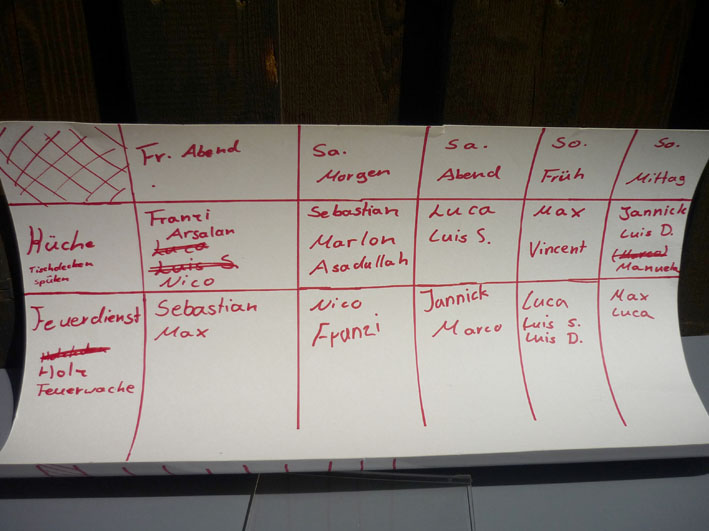 Fr. Abend
Sa.
Morgen
Sa.
Abend
So.
Früh
So.
Mittag
Küche
Tischdecken
spülen
Franzi
Arsalan
Luca
Luis S.
Nico
Sebastian
Marlon
Asadullah
Luca
Luis S.
Max
Vincent
Jannick
Luis D.
(Marco)
Manuel
Feuerdienst
Holz
Feuerwache
Sebastian
Max
Nico
Franzi
Jannick
Marco
Luca
Luis S.
Luis D.
Max
Luca